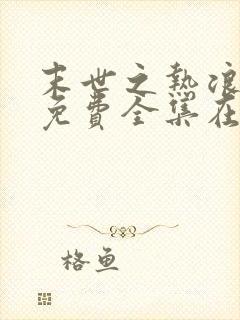 末世之热浪
免费全集在
格鱼